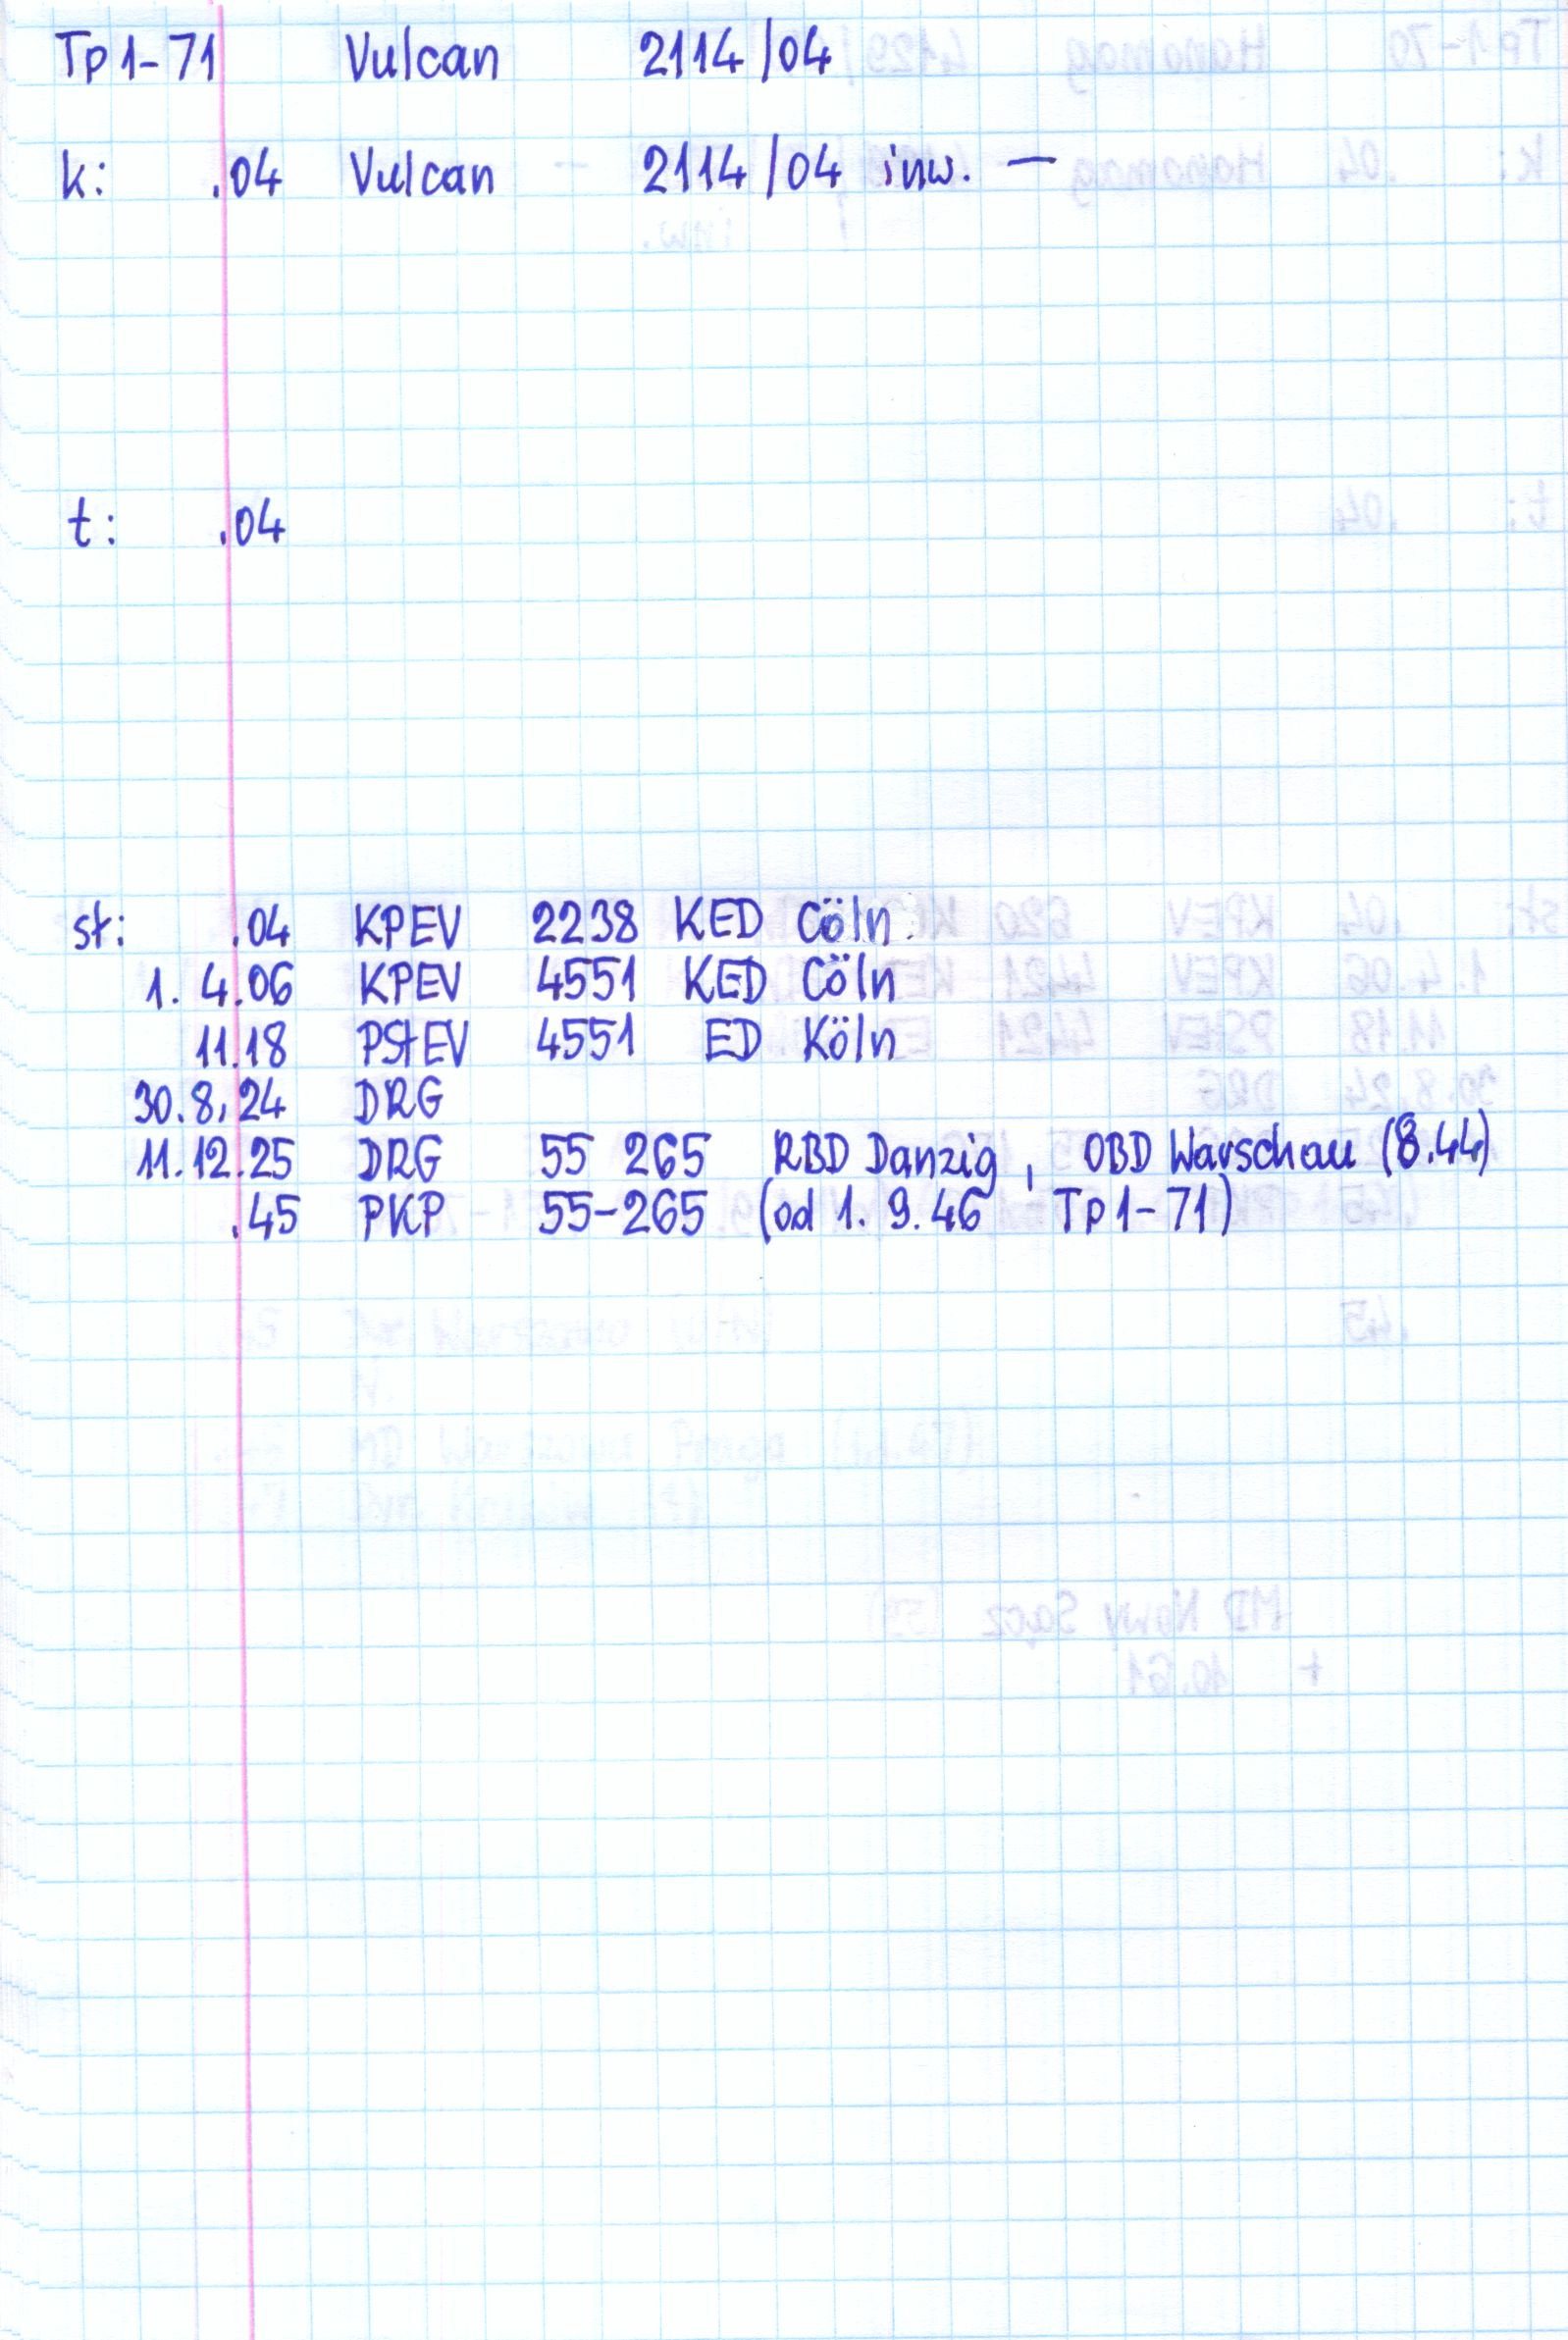 Tp1-71 Vulcan 2114/04
k: .04 Vulcan 2114/04 inw. —
t: .04
st: .04 KPEV 2238 KED Cöln
1. 4.06 KPEV 4551 KED Cöln
11.18 PStEV 4551 ED Köln
30.8.24 DRG
11.12.25 DRG 55 265 RBD Danzig, OBD Warschau (8.44)
.45 PKP 55-265 (od 1. 9. 46 Tp1-71)